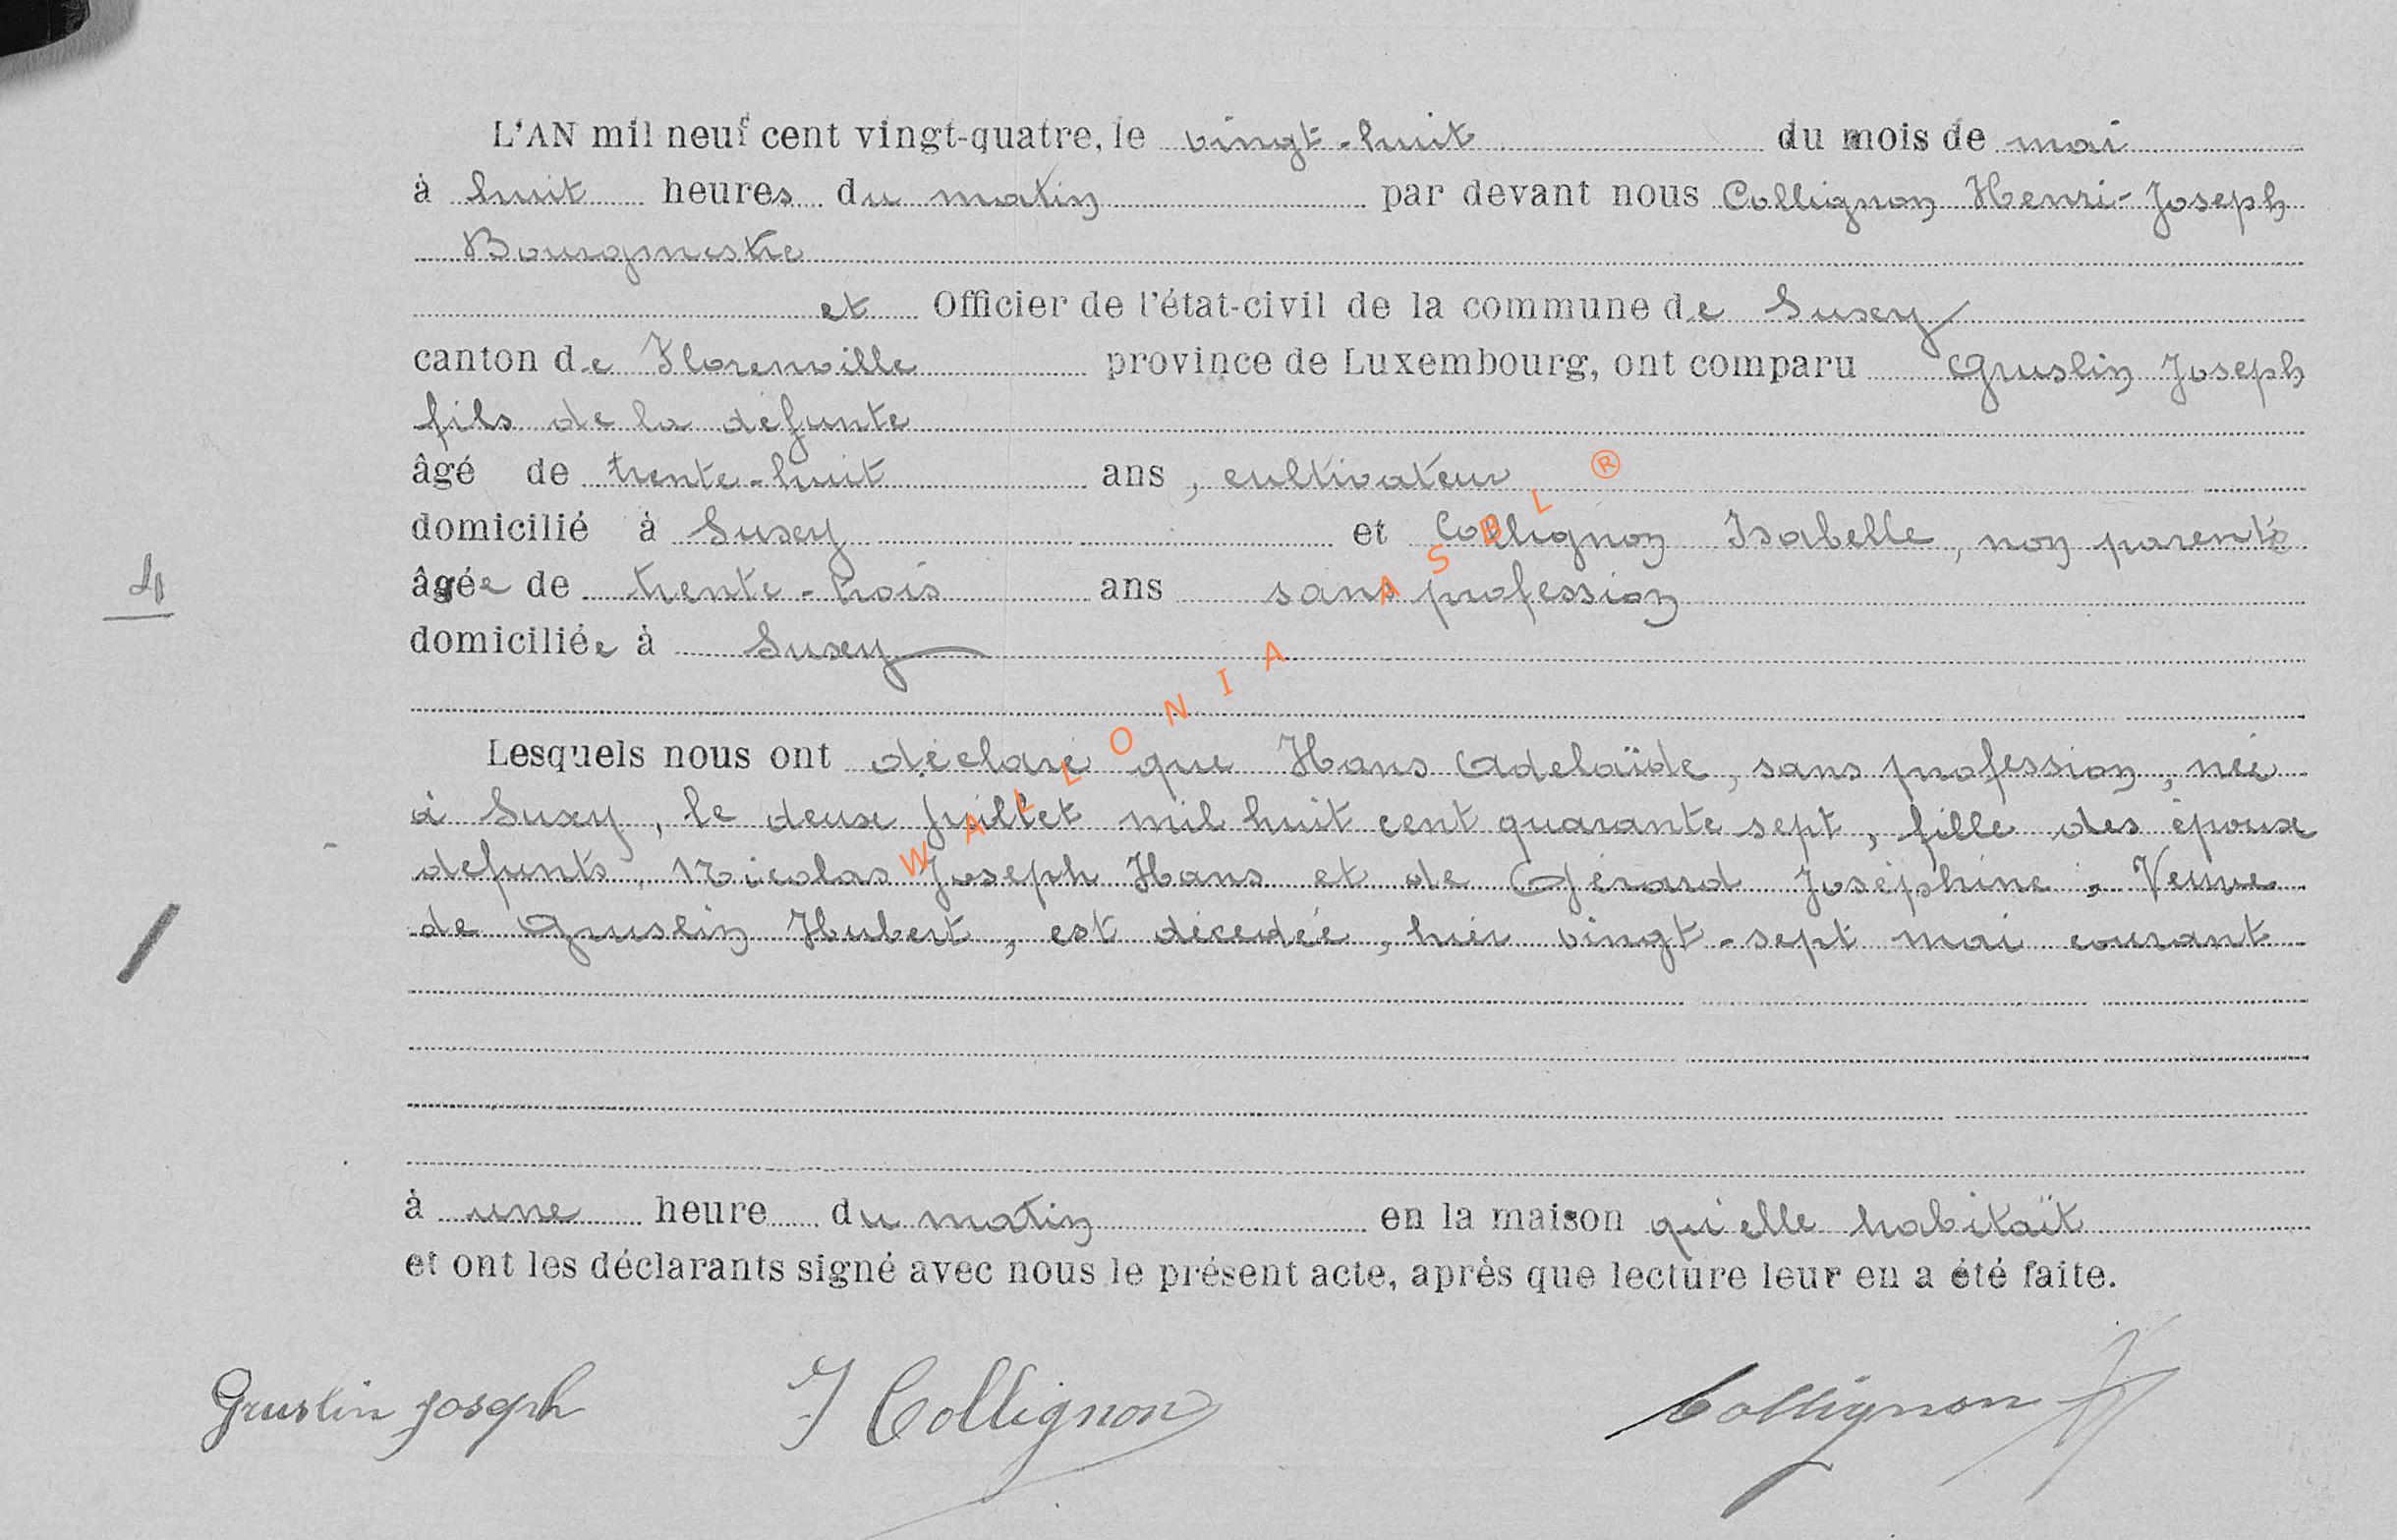 L'AN mil neuf cent vingt-quatre, le vingt-huit du mois de mai
à huit heures du matin par devant nous Collignon Henri-Joseph
Bourgmestre
et Officier de l'état-civil de la commune de Suxy
canton de Florenville province de Luxembourg, ont comparu Gruslin Joseph
fils de la défunte
âgé de trente-huit ans, cultivateur
domicilié à Suxy et Collignon Isabelle, non parente
4
âgée de trente-trois ans sans profession
domiciliée à Suxy
Lesquels nous ont déclaré que Hans Adelaïde, sans profession, née
à Suxy, le deux Juillet mil huit cent quarante sept, fille des époux
defunts, Nicolas Joseph Hans et de Gérard Joséphine, Veuve
de Gruslin Hubert, est décédée, hier vingt-sept mai courant
à une heure du matin en la maison qu'elle habitait
et ont les déclarants signé avec nous le présent acte, après que lecture leur en a été faite.
Gruslin Joseph I Collignon Collignon
WALLONIA ASBL ®